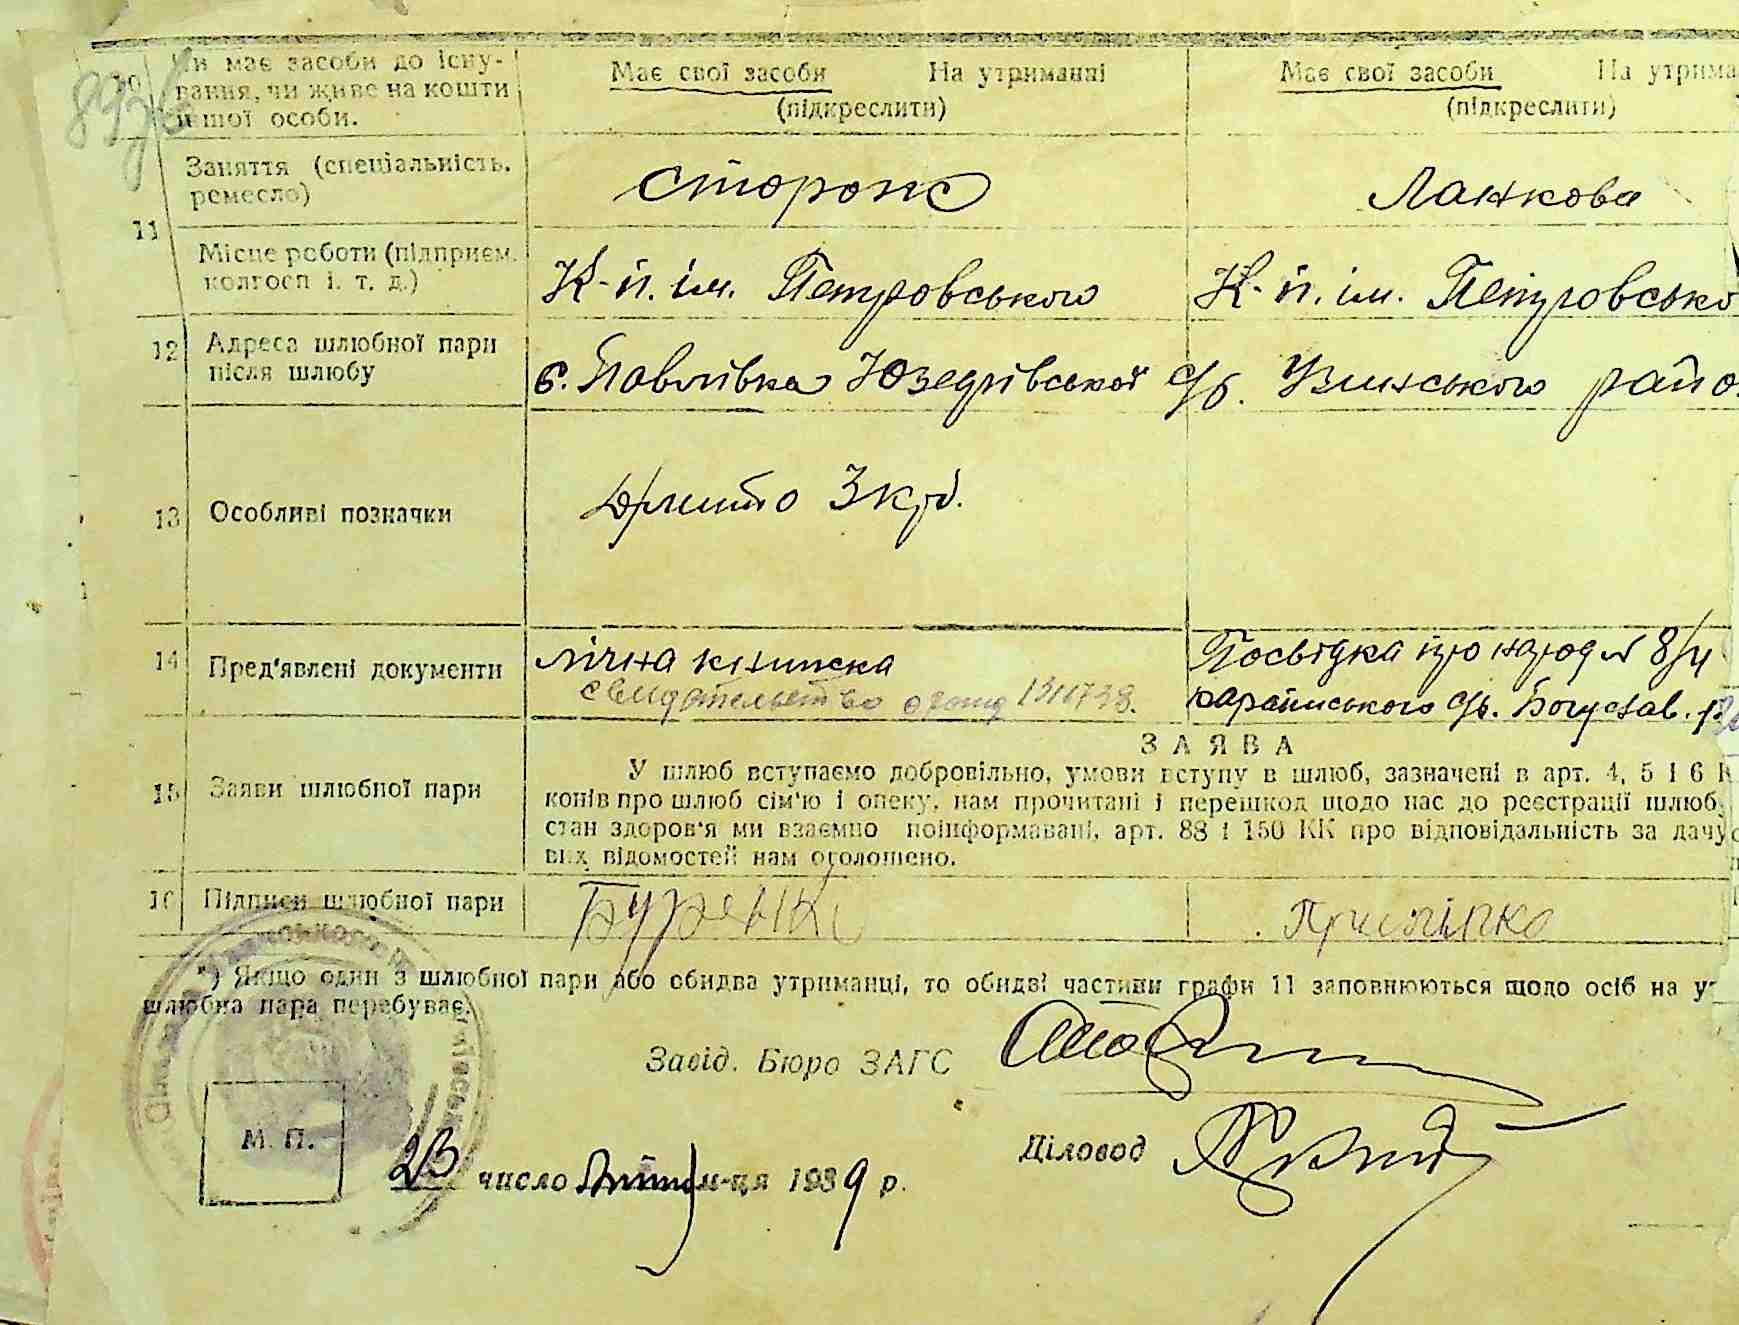 10 Чи має засоби до існу-
вання, чи живе на кошти
іншої особи.
Має свої засоби На утриманні
(підкреслити)
Має свої засоби На утрима
(підкреслити)
11 Заняття (спеціальність,
ремесло)
сторож
Ланкова
Місце роботи (підприєм.
колгосп і. т. д.)
К-п. ім. Петровського
К-п. ім. Петровсько
12 Адреса шлюбної пари
після шлюбу
с. Павлівка Юзефівської с/р. Узинського райо
13 Особливі позначки
3 крб.
14 Пред'явлені документи
лічна книжка
свидетельство
Посвідка про народ № 8/4
караписького с/р. Богуслав. р
15 Заяви шлюбної пари
ЗАЯВА
У шлюб вступаємо добровільно, умови вступу в шлюб, зазначені в арт. 4, 5 і 6 К
конів про шлюб сім'ю і опеку, нам прочитані і перешкод щодо нас до реєстрації шлюб
стан здоров'я ми взаємно поінформавані, арт. 88 і 150 КК про відповідальність за дачу
вих відомостей нам оголошено.
16 Підписи шлюбної пари
Буренк
Приліпко
*) Якщо один з шлюбної пари або обидва утриманці, то обидві частини графи 11 заповнюються щодо осіб на ут
шлюбна пара перебуває.
Завід. Бюро ЗАГС
Діловод
М. П.
23 число м-ця 1939 р.